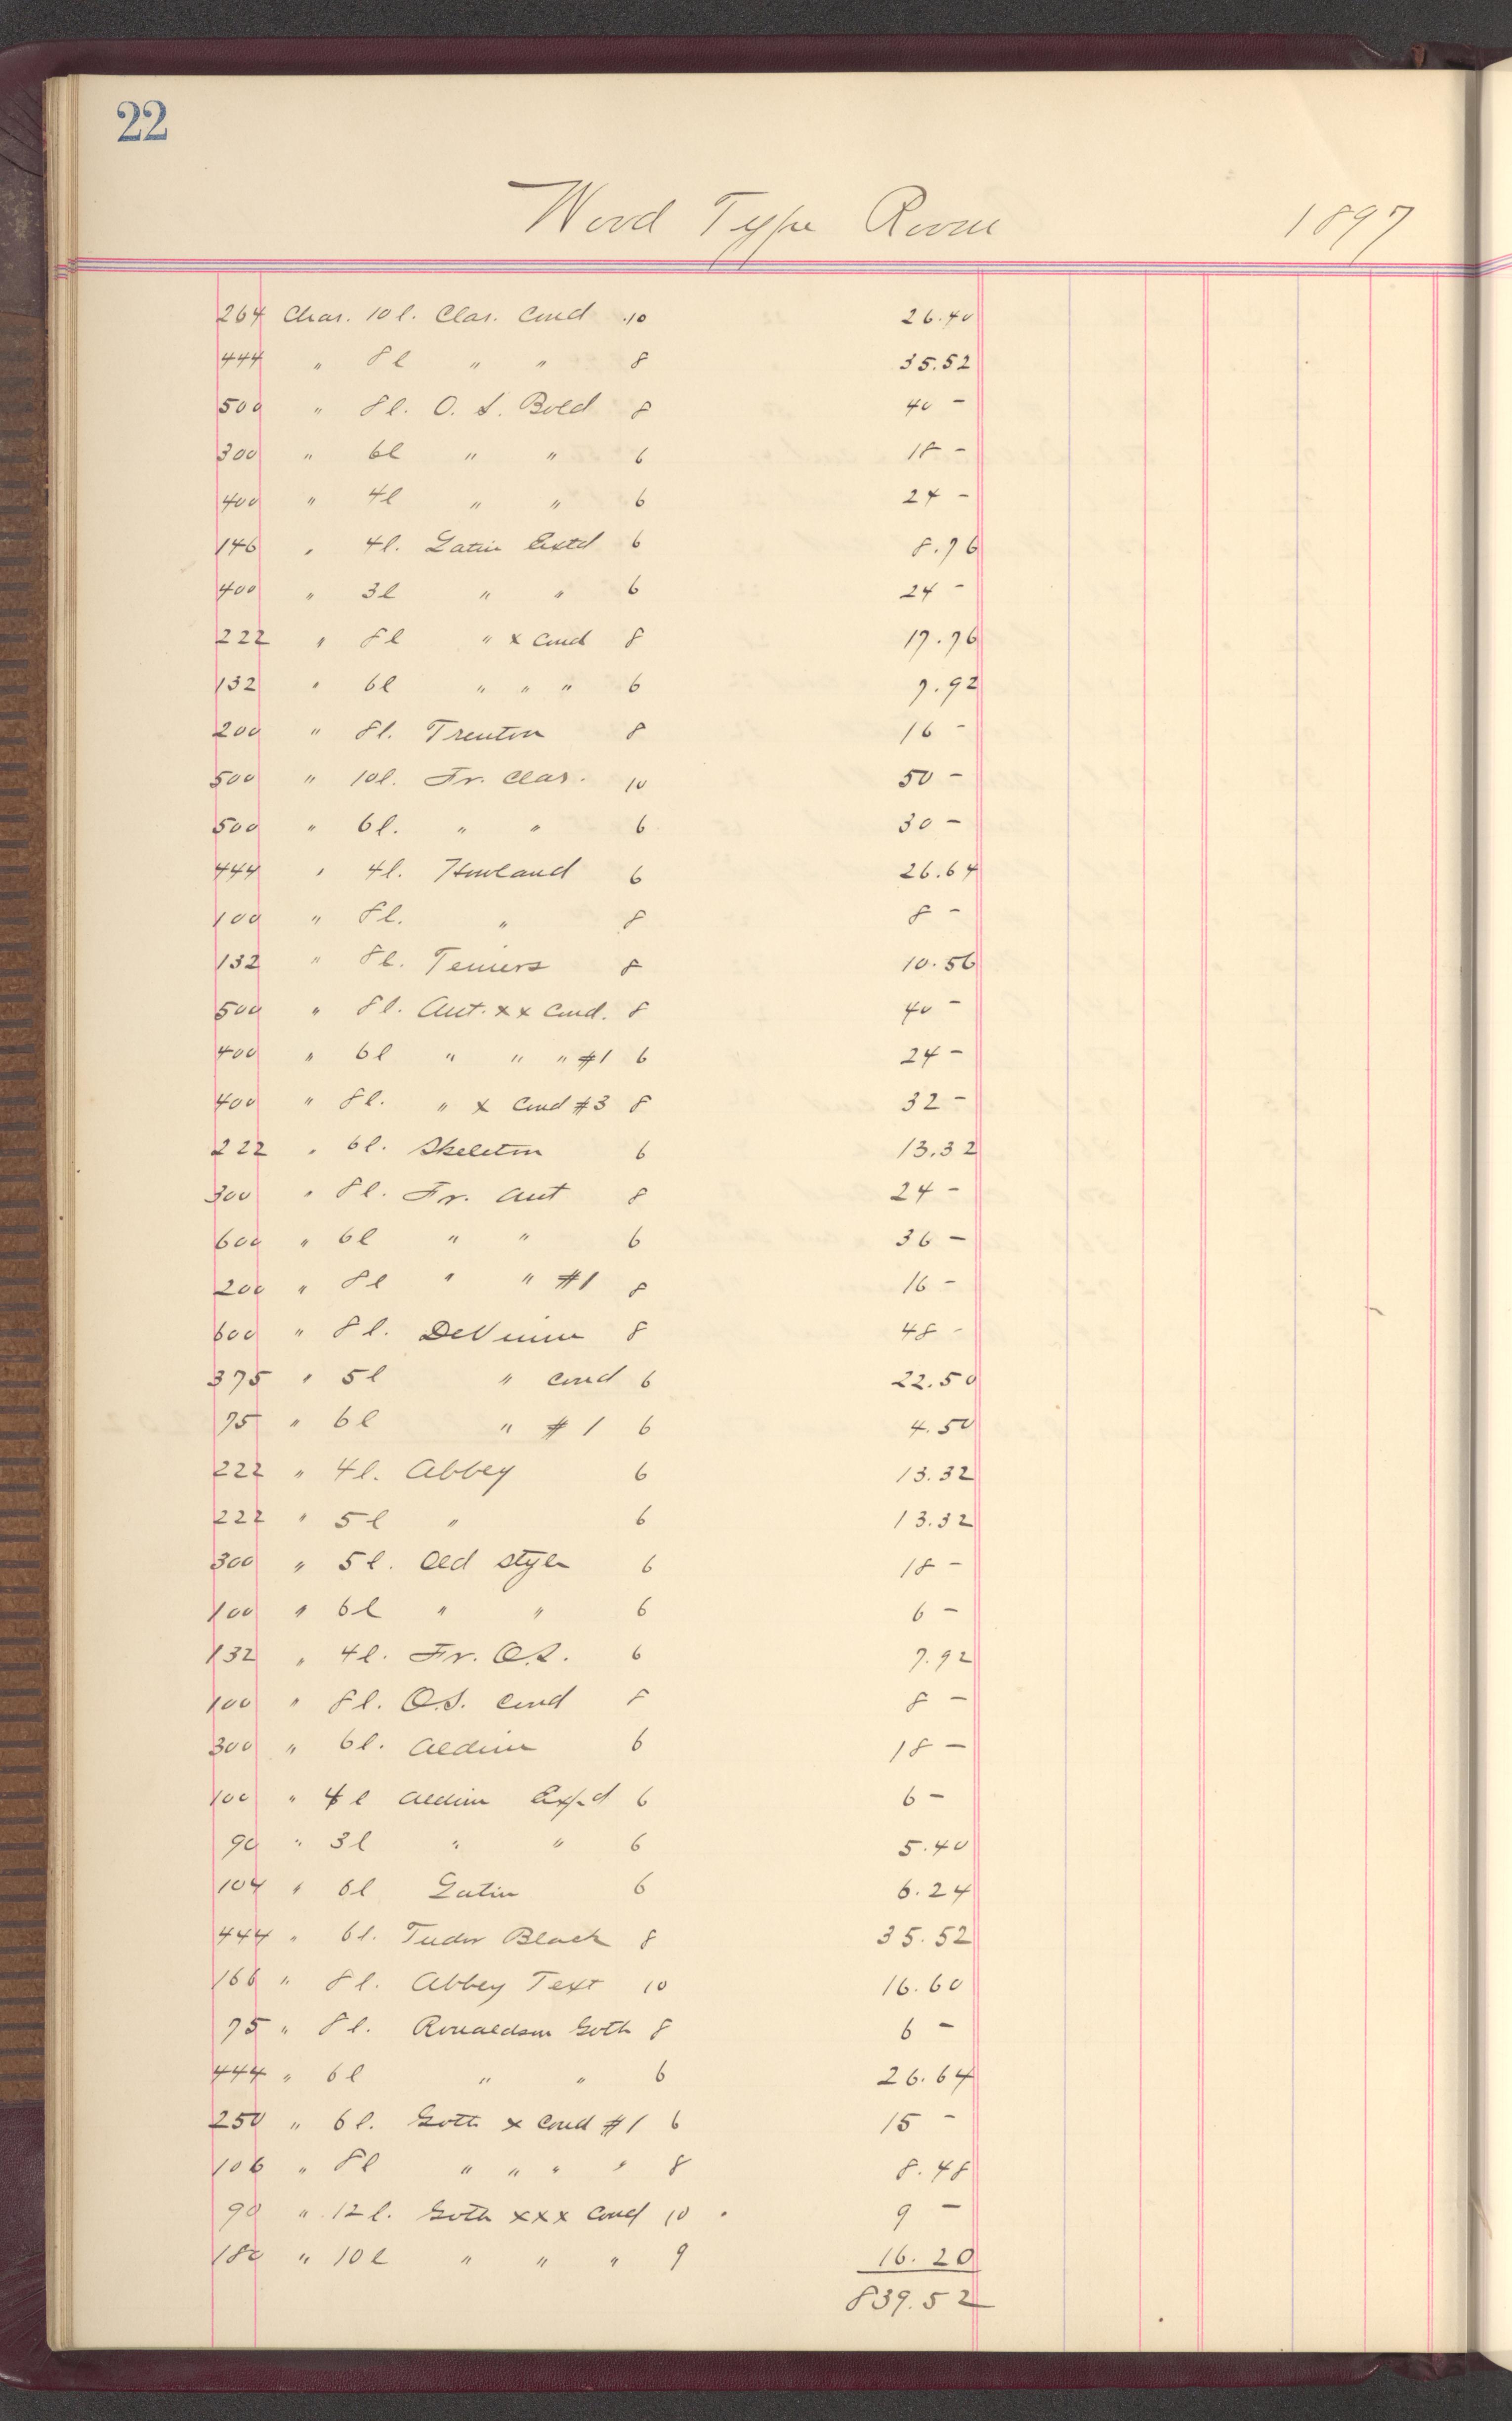 22
Wood Type Room 1897
264 Char. 10 l. Clar. Cond .10 26.40
444 " 8 l " " 8 35.52
500 " 8 l. O. S. Bold 8 40 -
300 " 6 l " " 6 18 -
400 " 4 l " " 6 24 -
146 " 4 l. Latin Extd 6 8.76
400 " 3 l " " 6 24 -
222 " 8 l " x Cond 8 17.76
132 " 6 l " " " 6 7.92
200 " 8 l. Trenton 8 16 -
500 " 10 l. Fr. Clar. 10 50 -
500 " 6 l. " " 6 30 -
444 " 4 l. Howland 6 26.64
100 " 8 l. " 8 8 -
132 " 8 l. Teniers 8 10.56
500 " 8 l. Ant. x x Cond. 8 40 -
400 " 6 l " " " #1 6 24 -
400 " 8 l. " x Cond #3 8 32 -
222 " 6 l. Skeleton 6 13.32
300 " 8 l. Fr. Ant 8 24 -
600 " 6 l " " 6 36 -
200 " 8 l " " #1 8 16 -
600 " 8 l. DeVinne 8 48 -
375 " 5 l " Cond 6 22.50
75 " 6 l " #1 6 4.50
222 " 4 l. Abbey 6 13.32
222 " 5 l " 6 13.32
300 " 5 l. Old Style 6 18 -
100 " 6 l " " 6 6 -
132 " 4 l. Fr. O.S. 6 7.92
100 " 8 l. O.S. Cond 8 8 -
300 " 6 l. Aldine 6 18 -
100 " 4 l Aldine Exp.d 6 6 -
90 " 3 l " " 6 5.40
104 " 6 l Latin 6 6.24
444 " 6 l. Tudor Black 8 35.52
166 " 8 l. Abbey Text 10 16.60
75 " 8 l. Ronaldson Goth 8 6 -
444 " 6 l " " 6 26.64
250 " 6 l. Goth x Cond #1 6 15 -
106 " 8 l " " " " 8 8.48
90 " 12 l. Goth xxx Cond 10 9 -
180 " 10 l " " " 9 16.20
839.52